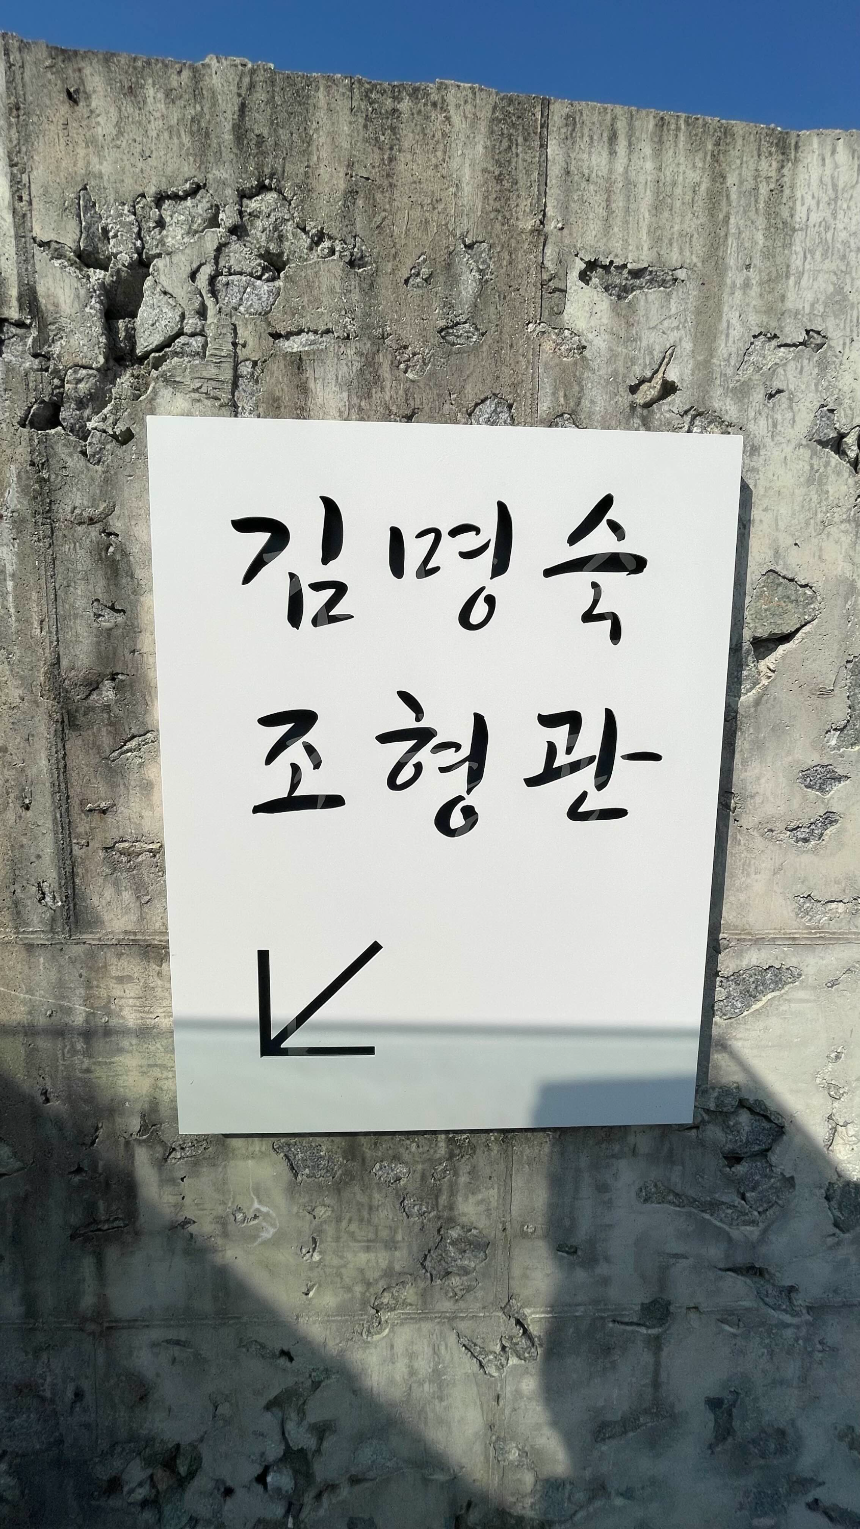 김명숙
조형관